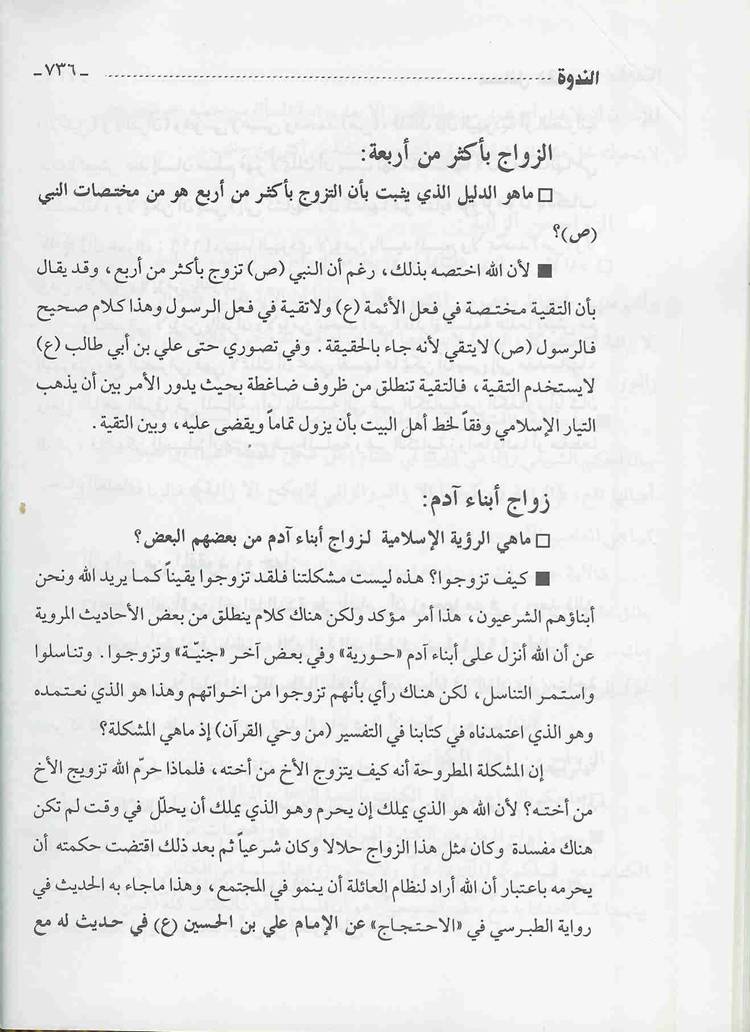 الندوة ........................................................ -٧٣٦-
الزواج بأكثر من أربعة:
□ ماهو الدليل الذي يثبت بأن التزوج بأكثر من أربع هو من مختصات النبي
(ص)؟
■ لأن الله اختصه بذلك، رغم أن النبي (ص) تزوج بأكثر من أربع، وقد يقال
بأن التقية مختصة في فعل الأئمة (ع) ولاتقية في فعل الرسول وهذا كلام صحيح
فالرسول (ص) لايتقي لأنه جاء بالحقيقة. وفي تصوري حتى علي بن أبي طالب (ع)
لايستخدم التقية، فالتقية تنطلق من ظروف ضاغطة بحيث يدور الأمر بين أن يذهب
التيار الإسلامي وفقاً لخط أهل البيت بأن يزول تماماً ويقضى عليه، وبين التقية.
زواج أبناء آدم:
□ ماهي الرؤية الإسلامية لـزواج أبناء آدم من بعضهم البعض؟
■ كيف تزوجوا؟ هذه ليست مشكلتنا فلقد تزوجوا يقيناً كما يريد الله ونحن
أبناؤهم الشرعيون، هذا أمر مؤكد ولكن هناك كلام ينطلق من بعض الأحاديث المروية
عن أن الله أنزل على أبناء آدم «حورية» وفي بعض آخر «جنيّة» وتزوجوا. وتناسلوا
واستمر التناسل، لكن هناك رأي بأنهم تزوجوا من اخواتهم وهذا هو الذي نعتمده
وهو الذي اعتمدناه في كتابنا في التفسير (من وحي القرآن) إذ ماهي المشكلة؟
إن المشكلة المطروحة أنه كيف يتزوج الأخ من أخته، فلماذا حرّم الله تزويج الأخ
من أخته؟ لأن الله هو الذي يملك إن يحرم وهو الذي يملك أن يحلّل في وقت لم تكن
هناك مفسدة وكان مثل هذا الزواج حلالا وكان شرعياً ثم بعد ذلك اقتضت حكمته أن
يحرمه باعتبار أن الله أراد لنظام العائلة أن ينمو في المجتمع، وهذا ماجاء به الحديث في
رواية الطبرسي في «الاحتجاج» عن الإمام علي بن الحسين (ع) في حديث له مع